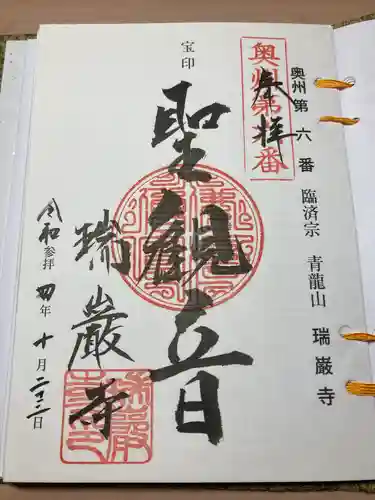 奥州第六番
臨済宗 青龍山 瑞巌寺
奥州第六番
奉拝
宝印
聖観音
瑞巖寺
令和参拝四年十月二十二日